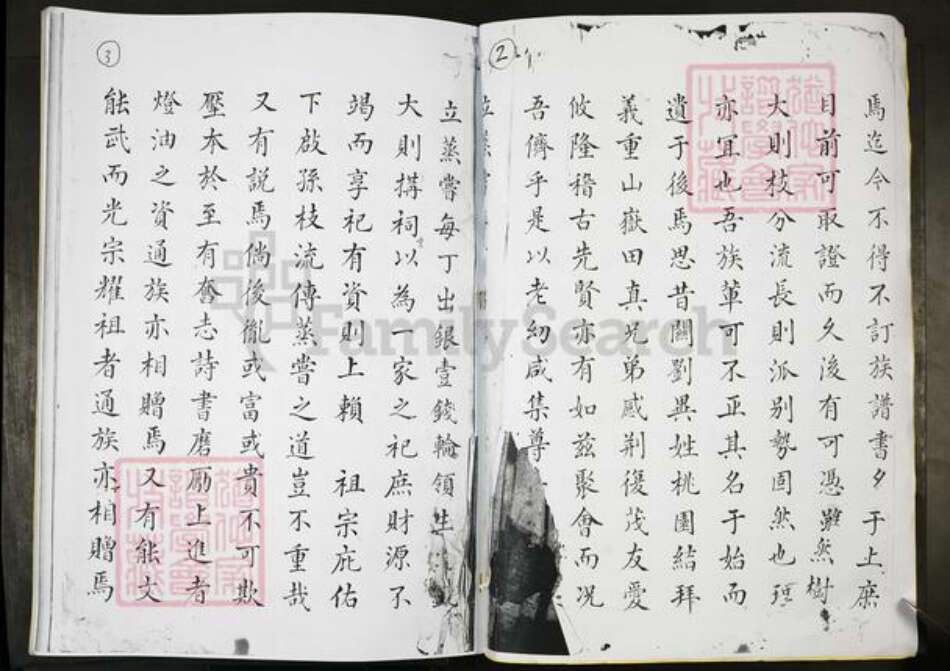 ②
焉迄今不得不訂族譜書夕于上庶
目前可取證而久後有可憑雖然樹
大則枝分流長則派别勢固然也理
亦宜也吾族軰可不正其名于始而
遺于後焉思昔關劉異姓桃園結拜
義重山嶽田真兄弟感荆復茂友愛
攸隆稽古先賢亦有如兹聚會而况
吾儕乎是以老幼咸集尊
③
立蒸嘗每丁出銀壹錢輪領生
大則搆祠以為一家之祀庶財源不
竭而享祀有資則上賴 祖宗庇佑
下啟孫枝流傳蒸嘗之道豈不重哉
又有説焉倘後胤或富或貴不可欺
壓本於至有奮志詩書磨勵上進者
燈油之資通族亦相贈焉又有能文
能武而光宗耀祖者通族亦相贈焉
FamilySearch